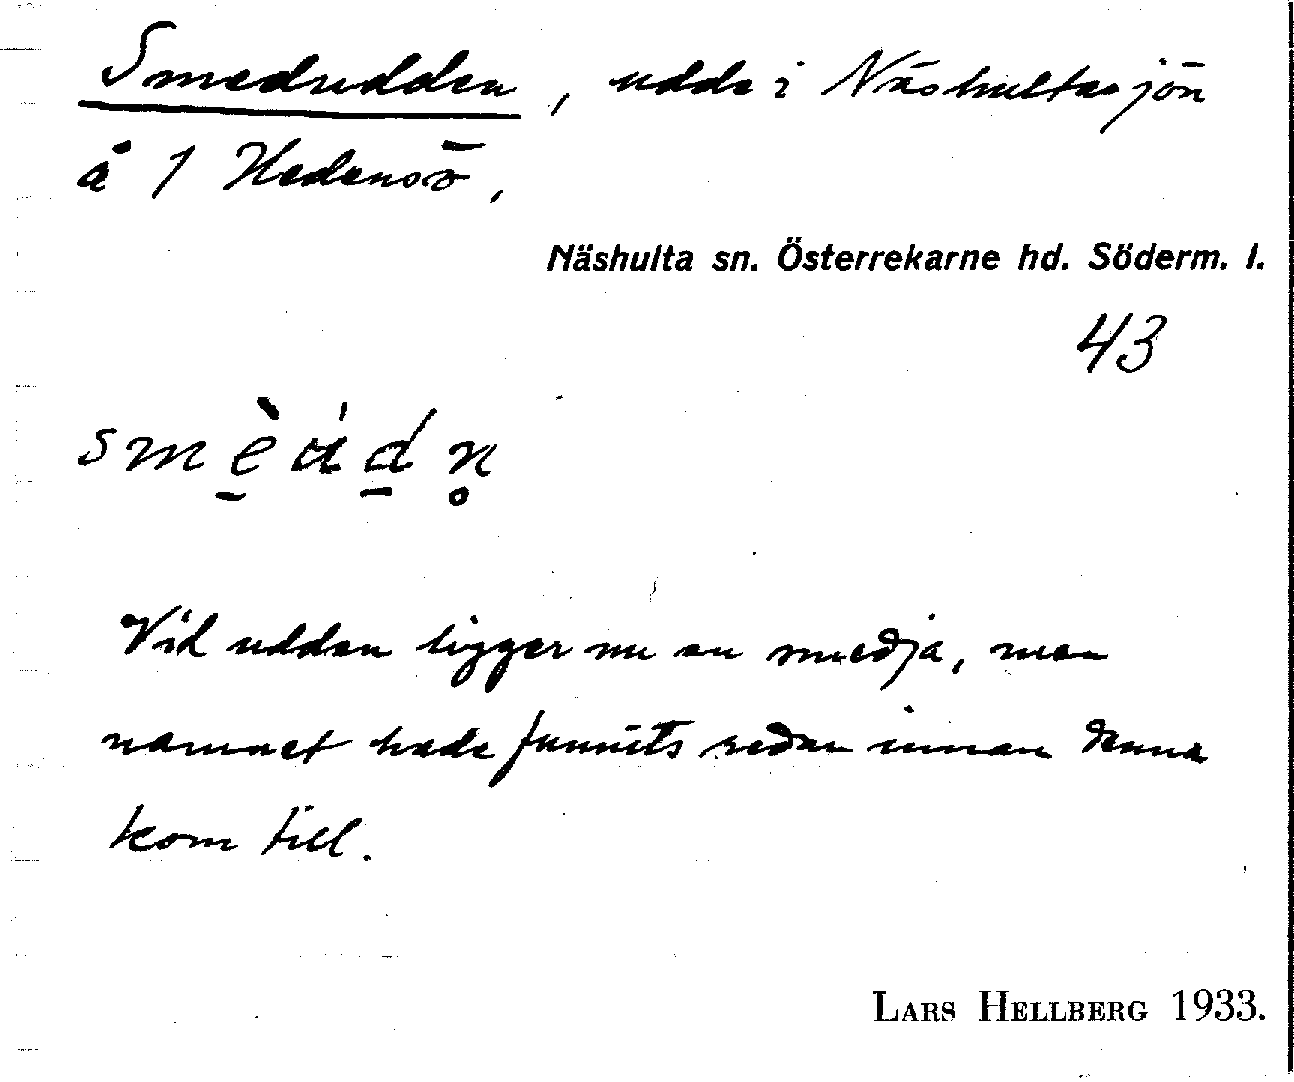 Smedudden, udde i Näshultasjön
å 1 Hedensö,
Näshulta sn. Österrekarne hd. Söderm. l.
43
Vid udden ligger nu en smedja, men
namnet hade funnits redan innan denna
kom till.
LARS HELLBERG 1933.